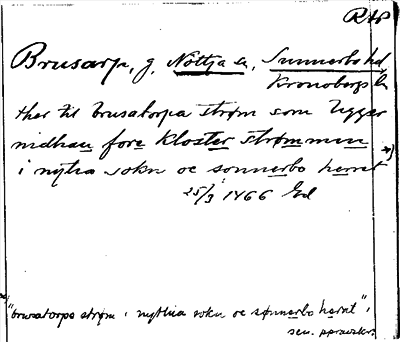 RAP
Brusarp, g, Nöttja sn, Sunnerbo hd,
Kronobergs län
ther til brusatorpa strøm som ligger
nidhan fore kloster strømmen *)
i nytia sokn oc sonnerbo herret
25/3 1466 Ed
*) "brusatorps strøm i nyttia sokn oc sønnerbo heret" i
sen. påskr.